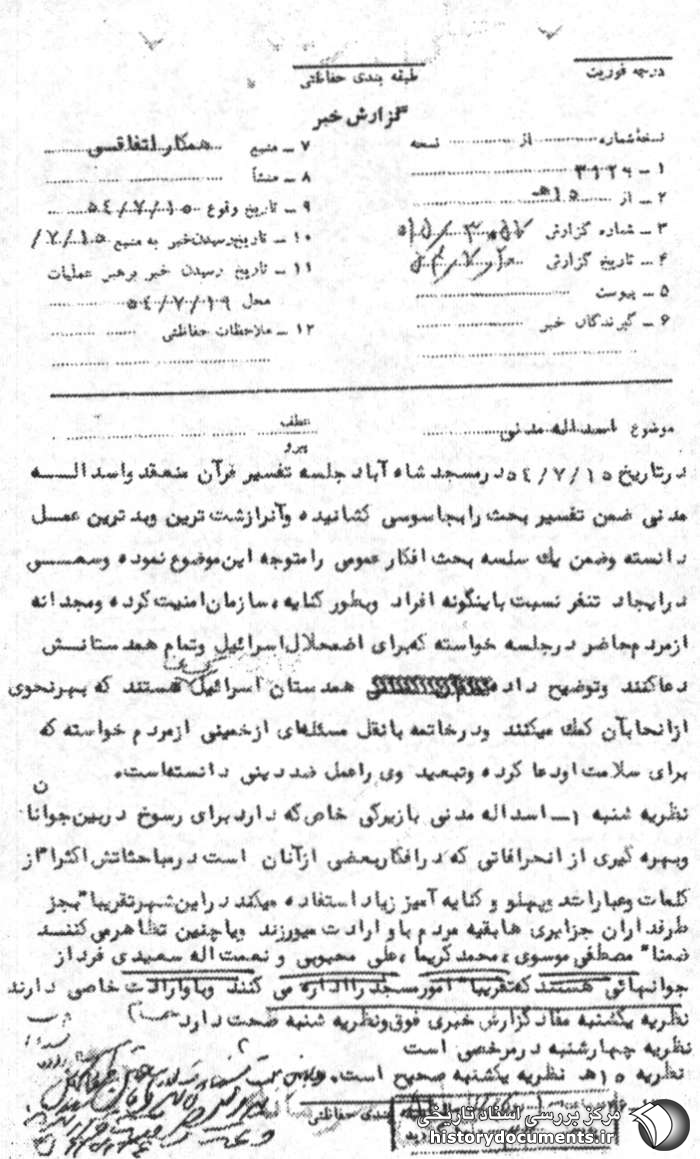 درجه فوریت
طبقه بندی حفاظتی
گزارش خبر
نسخه شماره ........ از ........ نسخه
۱ ــ ۳۱۲۶
۲ ــ از ۱۵هـ
۳ ــ شماره گزارش
۴ ــ تاریخ گزارش
۵ ــ پیوست
۶ ــ گیرندگان خبر
۷ ــ منبع همکار اتفاقسی
۸ ــ منشأ
۹ ــ تاریخ وقوع ۵٤/۷/۱۵
۱۰ ــ تاریخ رسیدن خبر به منبع ۷/۱۵/
۱۱ ــ تاریخ رسیدن خبر برهبر عملیات
محل ۵٤/۷/۱۹
۱۲ ــ ملاحظات حفاظتی
موضوع اسداله مدنی
عطف
پیرو
درتاریخ ۵٤/۷/۱۵ درمسجد شاه آباد جلسه تفسیر قرآن منعقد واسدالـــه
مدنی ضمن تفسیر بحث رابجاسوسی کشانیده وآنرازشت ترین وبدترین عمــل
دانسته وضمن یك سلسه بحث افکار عمومی رامتوجه این موضوع نموده وسعــی
درایجاد تنفر نسبت باینگونه افراد وبطور کنایه، سازمان امنیت کرده ومجدانه
ازمردم حاضر درجلسه خواسته که برای اضمحلال اسرائیل وتمام همدستانــش
دعاکنند وتوضیح داده همدستان اسرائیل هستند که بهرنحوی
ازانحابآن کمك میکنند ودرخاتمه بانقل مسئله‌ای ازخمینی ازمردم خواسته که
برای سلامت اودعا کرده وتبعید وی راعمل ضددینی دانسته‌است.
نظریه شنبه ۱ــ اسداله مدنی بازیرکی خاص که دارد برای رسوخ دربین جوانان
وبهره گیری از انحرافاتی که درافکاربعضی ازآنان است درمباحثاتش اکثرا" از
کلمات وعبارات دوپهلو و کنایه آمیز زیاد استفاده میکند دراین شهرتقریبا" بجز
طرفداران جزایری هابقیه مردم باو ارادت میورزند ویاچنین تظاهرمی کننــد
ضمنا" مصطفی موسوی، محمدکریما، علی محبوبی و نعمت اله سعیدی فرد از
جوانهائی هستند که تقریبا" امورمسجد رااداره می کنند وباوارادت خاصی دارند
نظریه یکشنبه مفاد گزارش خبری فوق ونظریه شنبه صحت دارد
نظریه چهارشنبه درمرخصی است
نظریه ۱۵هـ نظریه یکشنبه صحیح است.
طبقه بندی حفاظتی
مرکز بررسی اسناد تاریخی
historydocuments.ir